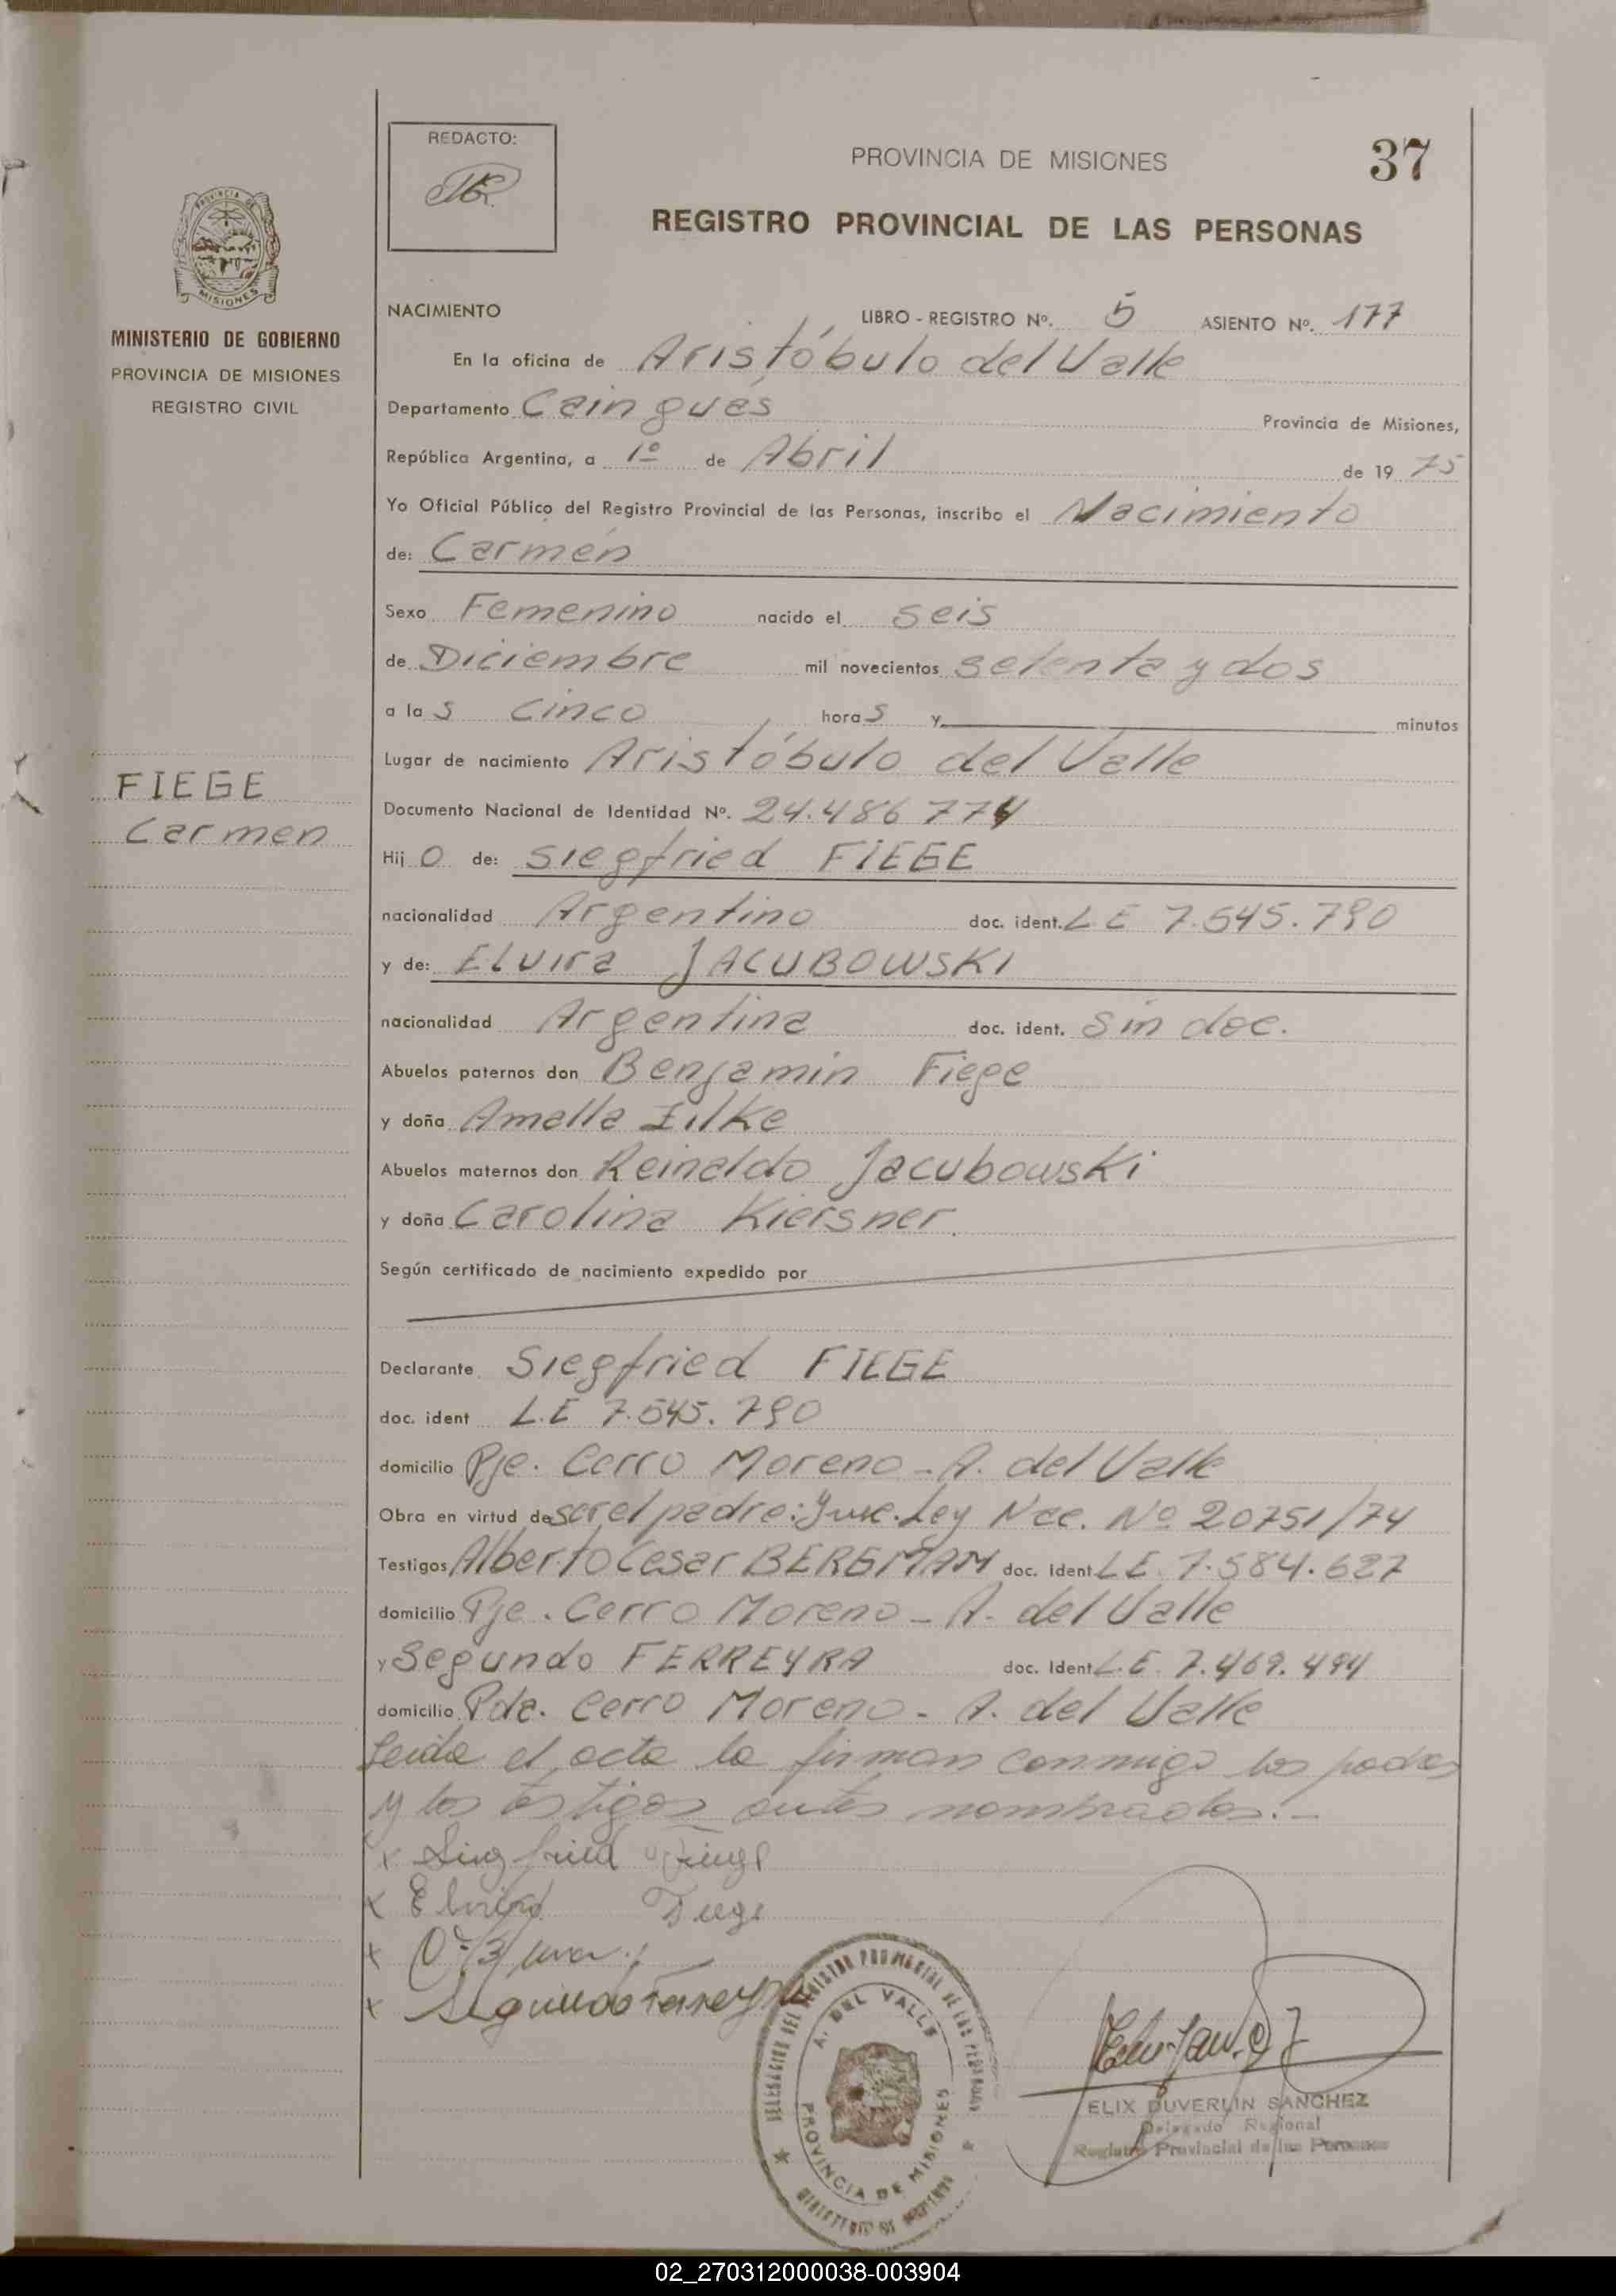 REDACTO:
PROVINCIA DE MISIONES
37
REGISTRO PROVINCIAL DE LAS PERSONAS
PROVINCIA DE
MISIONES
MINISTERIO DE GOBIERNO
PROVINCIA DE MISIONES
REGISTRO CIVIL
NACIMIENTO LIBRO - REGISTRO Nº. 5 ASIENTO Nº. 177
En la oficina de Aristóbulo del Valle
Departamento Cainguás Provincia de Misiones,
República Argentina, a 1º de Abril de 1975
Yo Oficial Público del Registro Provincial de las Personas, inscribo el Nacimiento
de: Carmen
Sexo Femenino nacido el seis
de Diciembre mil novecientos setenta y dos
a las cinco horas y minutos
Lugar de nacimiento Aristóbulo del Valle
FIEGE
Carmen
Documento Nacional de Identidad Nº. 24.486774
Hijo de: Siegfried FIEGE
nacionalidad Argentino doc. ident. LE 7.545.790
y de: Elvira JACUBOWSKI
nacionalidad Argentina doc. ident. Sin doc.
Abuelos paternos don Benjamin Fiege
y doña Amalia Zilke
Abuelos maternos don Reinaldo Jacubowski
y doña Carolina Kiersner
Según certificado de nacimiento expedido por
Declarante Siegfried FIEGE
doc. ident L.E 7.545.790
domicilio Pje. Cerro Moreno - A. del Valle
Obra en virtud de ser el padre: Ley Nac. Nº 20751/74
Testigos Alberto Cesar BERGMAM doc. Ident LE. 7.584.627
domicilio Pje. Cerro Moreno - A. del Valle
y Segundo FERREYRA doc. Ident L.E. 7.469.494
domicilio Pda. Cerro Moreno - A. del Valle
Leida el acta la firman conmigo los padres
y los testigos antes nombrados.-
x Siegfried Fiege
x Elvira Fiege
x
x Segundo Ferreyra
DELEGACION DEL REGISTRO PROVINCIAL DE LAS PERSONAS
A. DEL VALLE
PROVINCIA DE MISIONES
MINISTERIO DE GOBIERNO
ELIX DUVERLIN SANCHEZ
Delegado Regional
Registro Provincial de las Personas
02_270312000038-003904